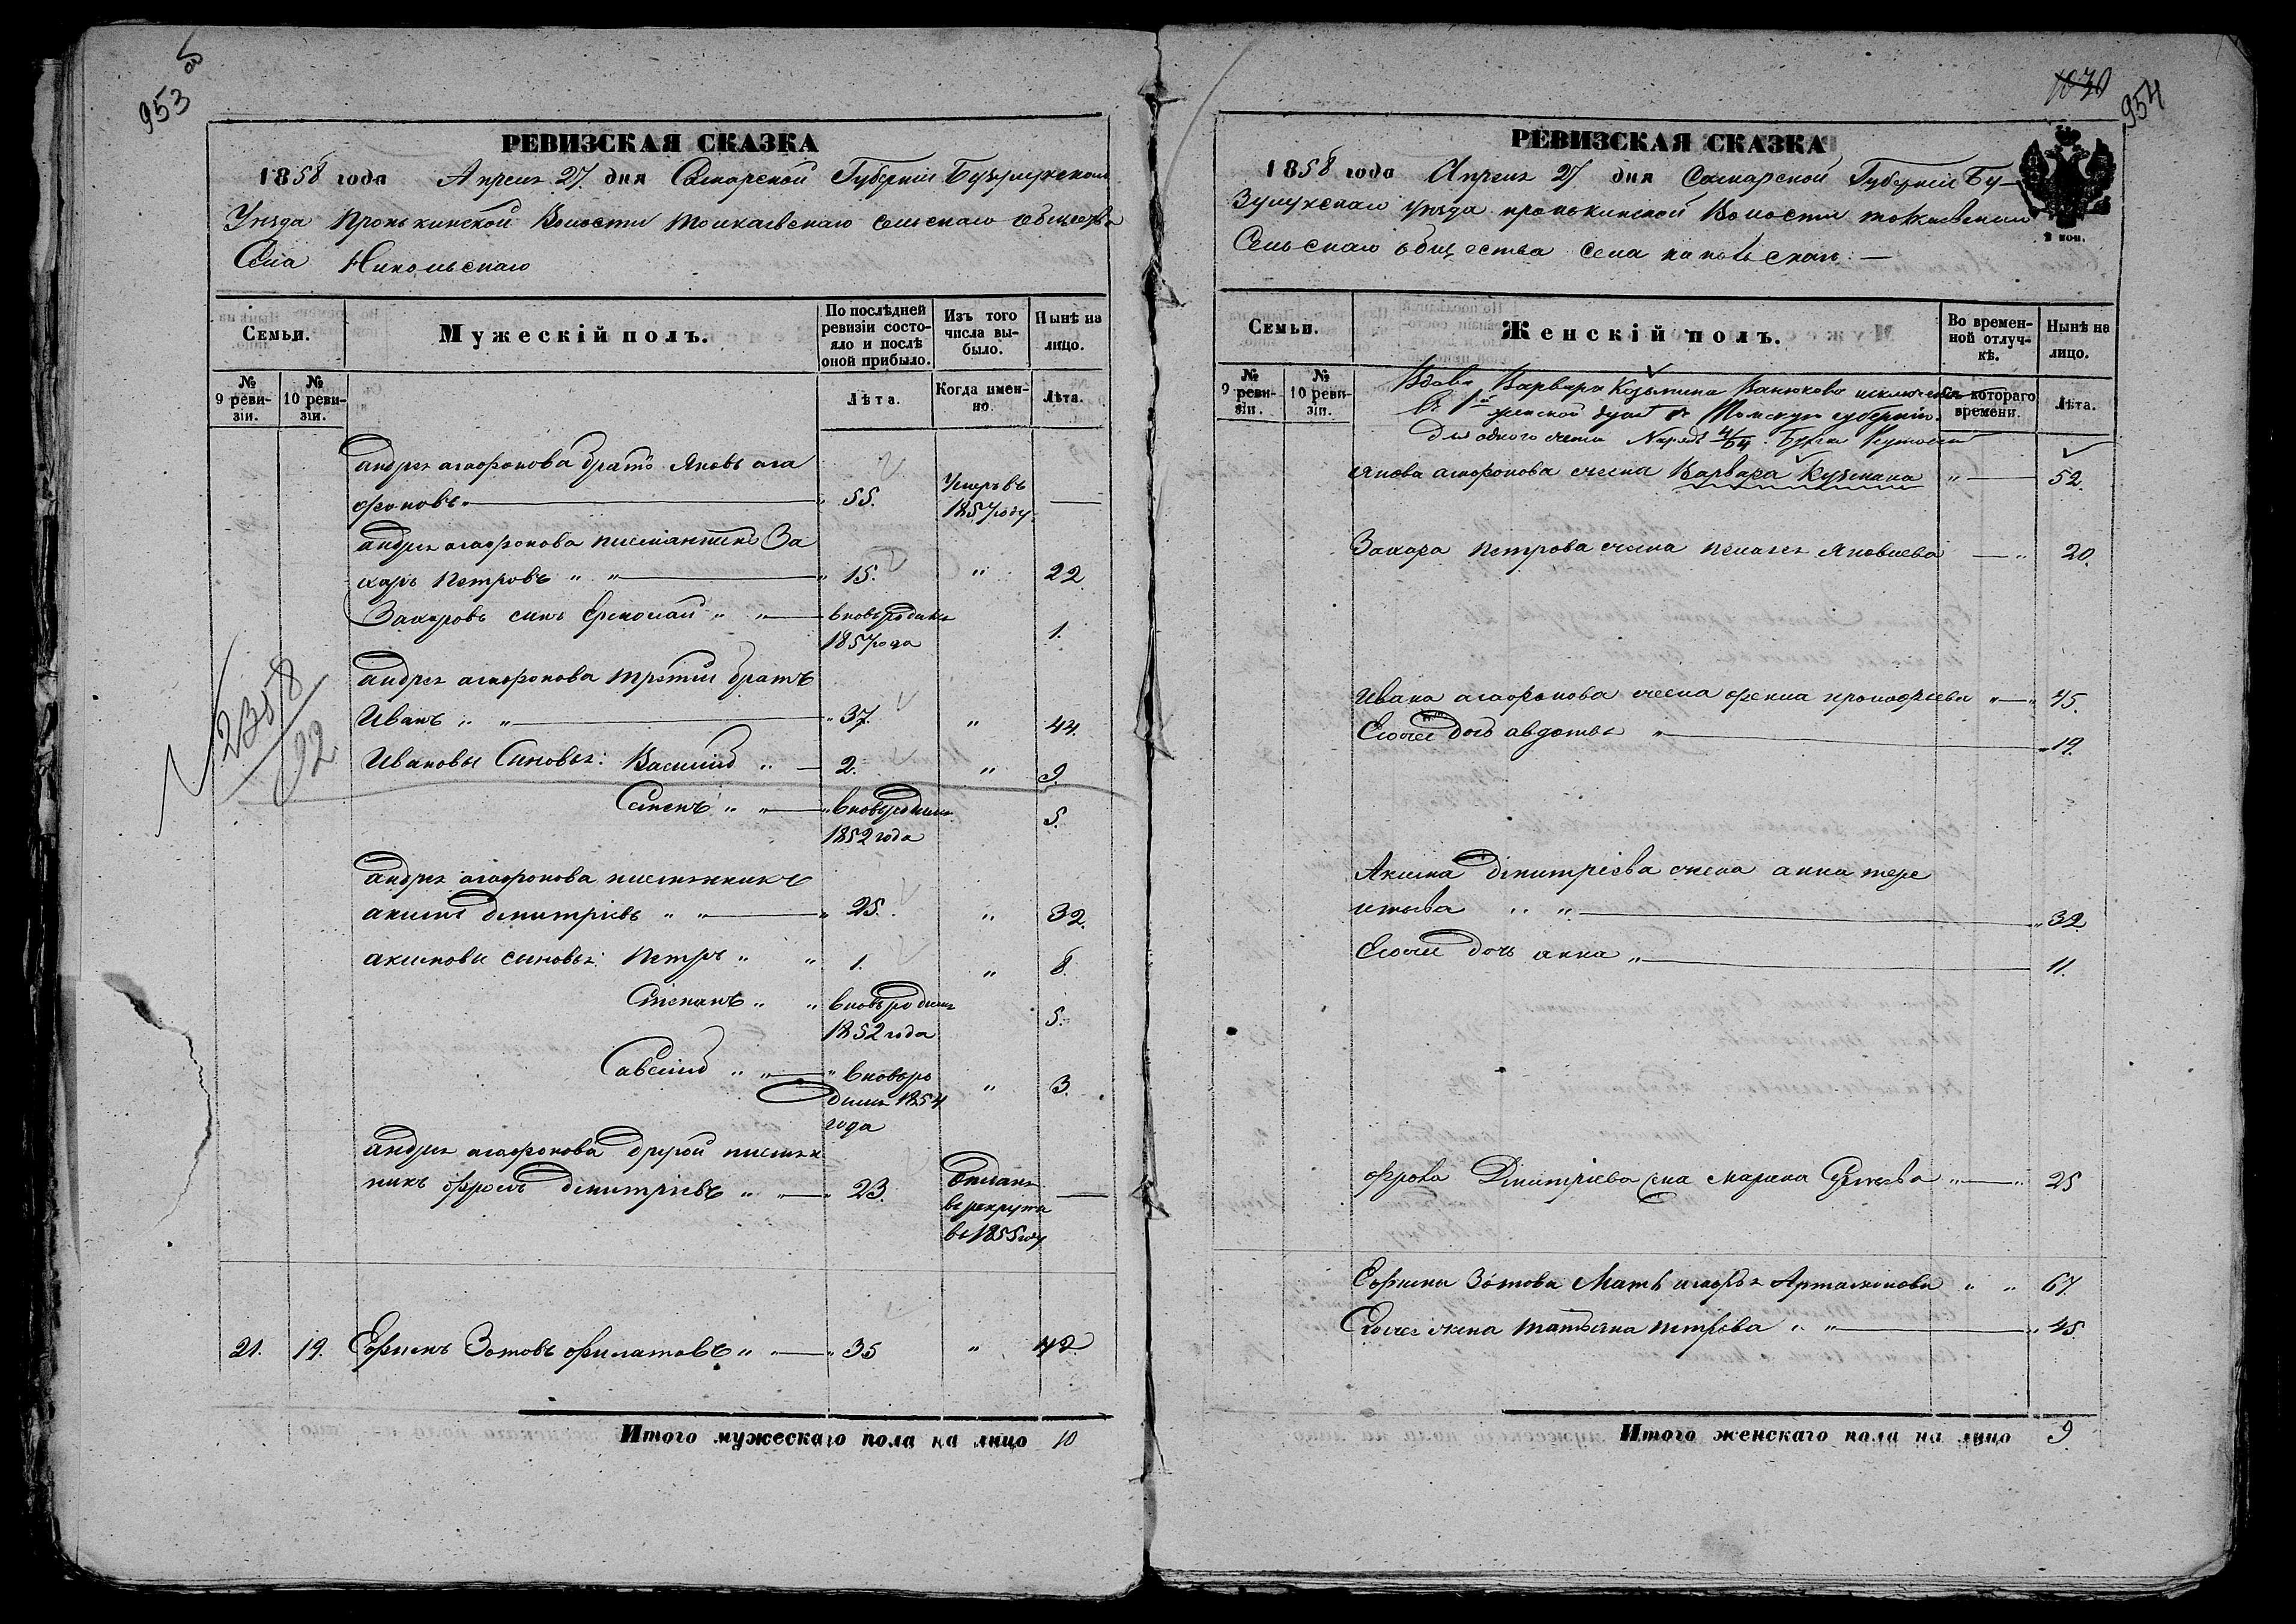 953
РЕВИЗСКАЯ СКАЗКА
1858 года Апреля 27 дня Самарской Губернии Бузулукскаго
Уезда Пронькинской Волости Толкаевскаго сельскаго общества
Села Никольскаго
Семьи.
Мужескій полъ.
По послѣдней ревизіи состояло и послѣ оной прибыло.
Изъ того числа выбыло.
Нынѣ на лицо.
№ 9 ревизіи.
№ 10 ревизіи.
Лѣта.
Когда именно.
Лѣта.
андрея агафонова братъ Яковъ ага
фоновъ 55. Умеръ въ
1857 году
андрея агафонова племянникъ За
харъ Петровъ " " 15. " 22
Захаровъ сынъ Ермолай " " вновьродился
1857 года 1.
андрея агафонова третий братъ
Иванъ " " 37. " 44.
Ивановы Сыновья: Василий " 2. " 9.
Семенъ " " вновьродился
1852 года 5.
андрея агафонова племянникъ
акимъ дмитриевъ " " 25. " 32.
акимовы сыновья: Петръ " " 1. " 8.
Степанъ " " вновь родился
1852 года 5.
Савелий " " вновьро
дился 1854 " 3.
года
андрея агафонова другой племян
никъ фролъ дмитриевъ " " 23. Отданъ
въ рекруты
въ 1855 году
2358
92
21. 19. Ефимъ Зотовъ филатовъ " " 35 " 42
Итого мужескаго пола на лицо 10
1030
954
РЕВИЗСКАЯ СКАЗКА
1858 года Апреля 27 дня Самарской Губернии Бу-
зулукскаго уезда пронькинской Волости толкаевскаго
Сельскаго общества села никольскаго —
2 коп.
Семьи.
Женскій полъ.
Во временной отлучкѣ.
Нынѣ на лицо.
№ 9 ревизіи.
№ 10 ревизіи.
Съ котораго времени.
Лѣта.
Вдова Варвара Козьмина Ванюкова исключена
въ Томскую губернию.
для одного счета
Якова агафонова жена Варвара Кузмина " 52.
Захара петрова жена пелагея Яковлева " 20.
Ивана агафонова жена фекла прокофьева " " 45.
Егоже дочь авдотья " 19.
Акима дмитриева жена анна тере
нтьева " " 32
Егоже дочь анна " 11.
фрола Дмитриева жена Марина " " 25
Ефима Зотова Мать агафья Артамонова " " 67.
Егоже жена татьяна петрова " " 45.
Итого женскаго пола на лицо 9